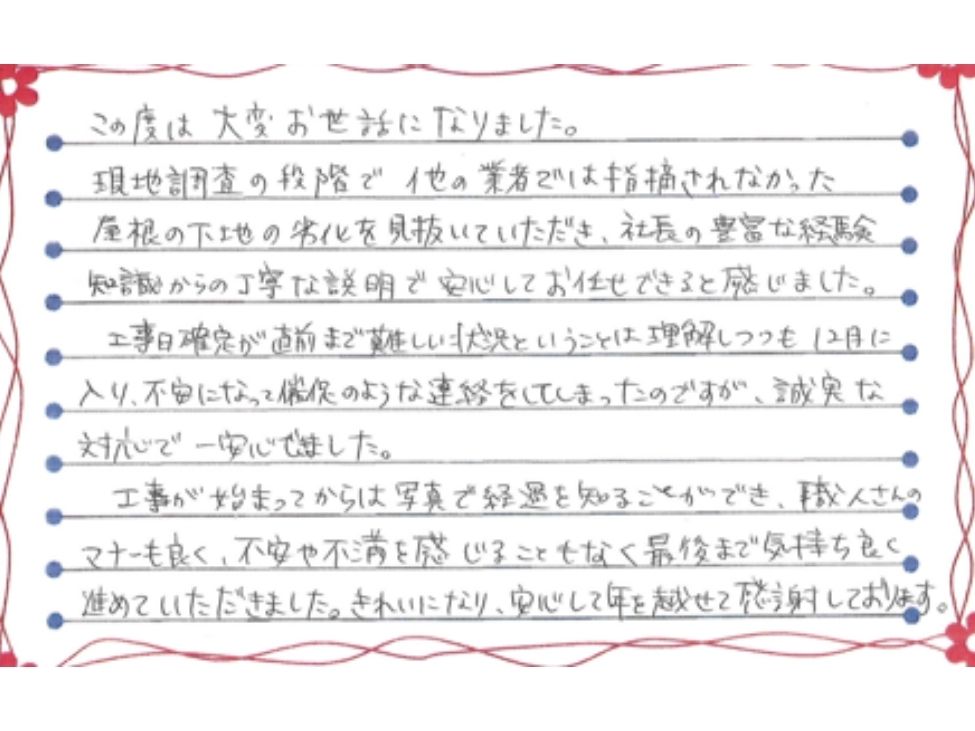 この度は 大変 お世話に なりました。
現地調査の段階で 他の業者では指摘されなかった
屋根の下地の劣化を見抜いていただき、社長の豊富な経験
知識からの丁寧な説明で安心してお任せできると感じました。
工事日確定が直前まで難しい状況ということは理解しつつも 12月に
入り、不安になって催促のような連絡をしてしまったのですが、誠実な
対応で一安心できました。
工事が始まってからは写真で経過を知ることができ、職人さんの
マナーも良く、不安や不満を感じることもなく最後まで気持ち良く
進めていただきました。きれいになり、安心して年を越せて感謝しております。